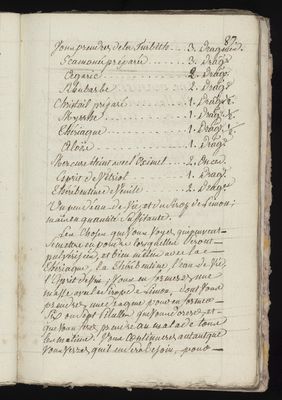 87.
Vous prendrez de la Turbitte ... 3. Dragmes.
Scamoné préparée ... 3. Drag.
Agaric ... 2. Drag.
Rhubarbe ... 2. Drag.
Christail préparé ... 1. Drag. ½
Myrrhe ... 1. Drag. ½
Thériaque ... 1. Drag. ½
Aloëe ... 1. Drag.
Mercure éteint avec l'Oximel ... 2. Onces.
Esprit de Vitriol ... 1. Drag.
Thérébentine de Venise ... 2. Dragmes
Un peu d'eau de Vie, et du Sirop de Limon;
mais en quantité suffisante.
Les Choses que vous voyez, qui peuvent
se mettre en poudre, lorsqu'elles seront
pulvérisées, et bien mêlées avec la
Thériaque, la Thérébentine, l'eau de Vie,
l'Esprit de ; vous en formerez une
masse avec le sirop de Limon, dont vous
prendrez, une dragme pour en former
six ou sept Pillules que vous dorerez, et
que vous ferez prendre au malade tous
les matins. Vous Continuerez autant que
vous verrez qu'il en sera besoin, pour